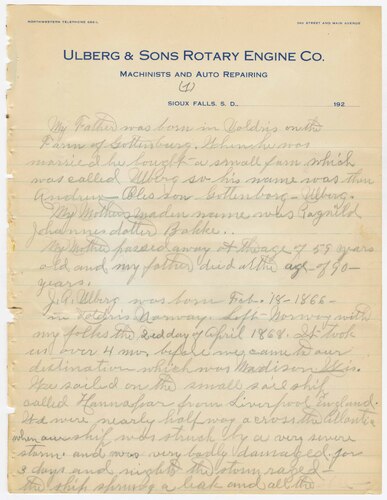 NORTHWESTERN TELEPHONE
2ND STREET AND MAIN AVENUE
ULBERG & SONS ROTARY ENGINE CO.
MACHINISTS AND AUTO REPAIRING
(1)
SIOUX FALLS, S. D., 192
My Father was born in Valdris on the
Farm of Gottenburg. When he was
married he bought a small farm which
was called Ulberg so his name was then
Andrew Oleson Gottenborg - Ulberg.
My Mothers maden name was Ragnild
Johannesdotter Bakke.
My Mother passed away at the age of 59 years
old and my father died at the age of 90-
years.
J.A. Ulberg was born Feb. 18-1866-
in Norway. Left Norway with
my folks the 2nd day of April 1868. It took
us over 4 mo. before we came to our
distination which was Madison Wis.
We sailed on the small sail ship
called Hannapar from Liverpool England.
We were nearly half way across the Atlantic
when our ship was struck by a very severe
storm and was very badly damaged. for
3 days and nights the storm raged -
the ship sprung a leak and all the